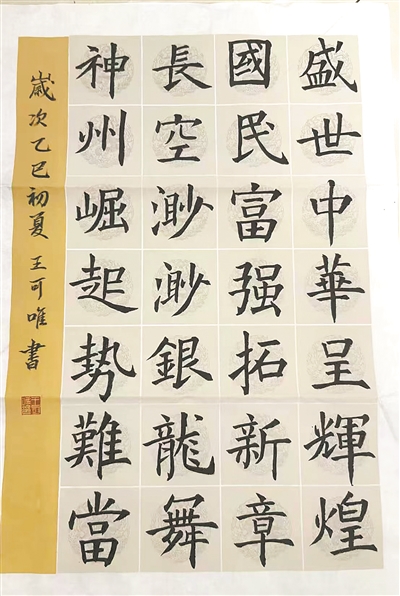 盛世中華呈輝煌
國民富强拓新章
長空渺渺銀龍舞
神州崛起勢難當
嵗次乙巳初夏王可唯書